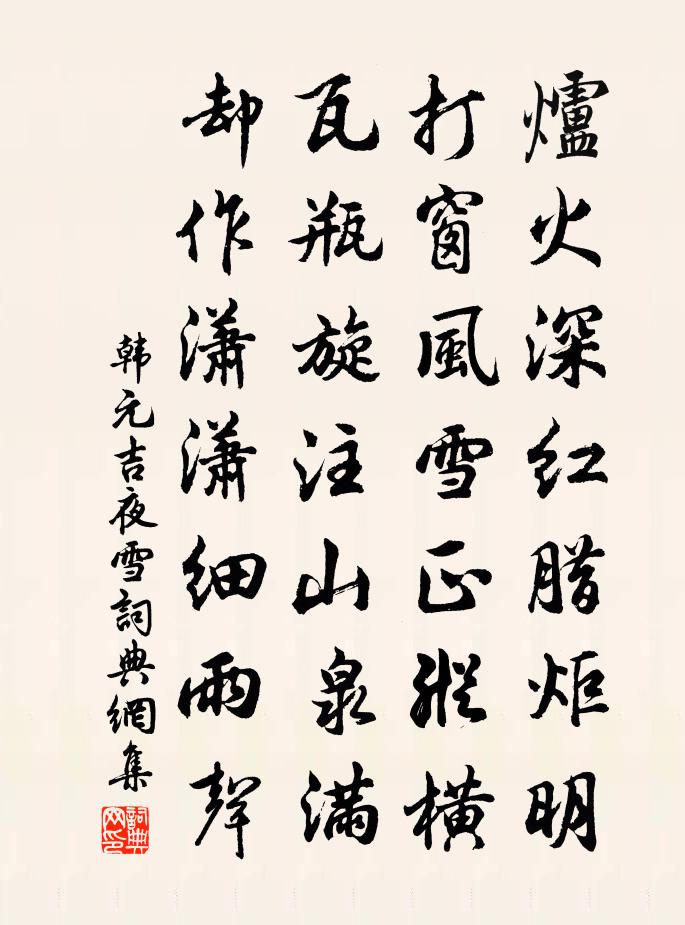 爐火深紅腊炬明
打窗風雪正縱橫
瓦瓶旋注山泉滿
却作瀟瀟細雨聲
韩元吉夜雪詞典網集
詞典网印